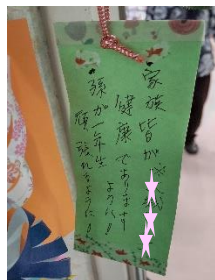 家族皆が
健康でありますように!!
孫が一年生
頑張れますように!!